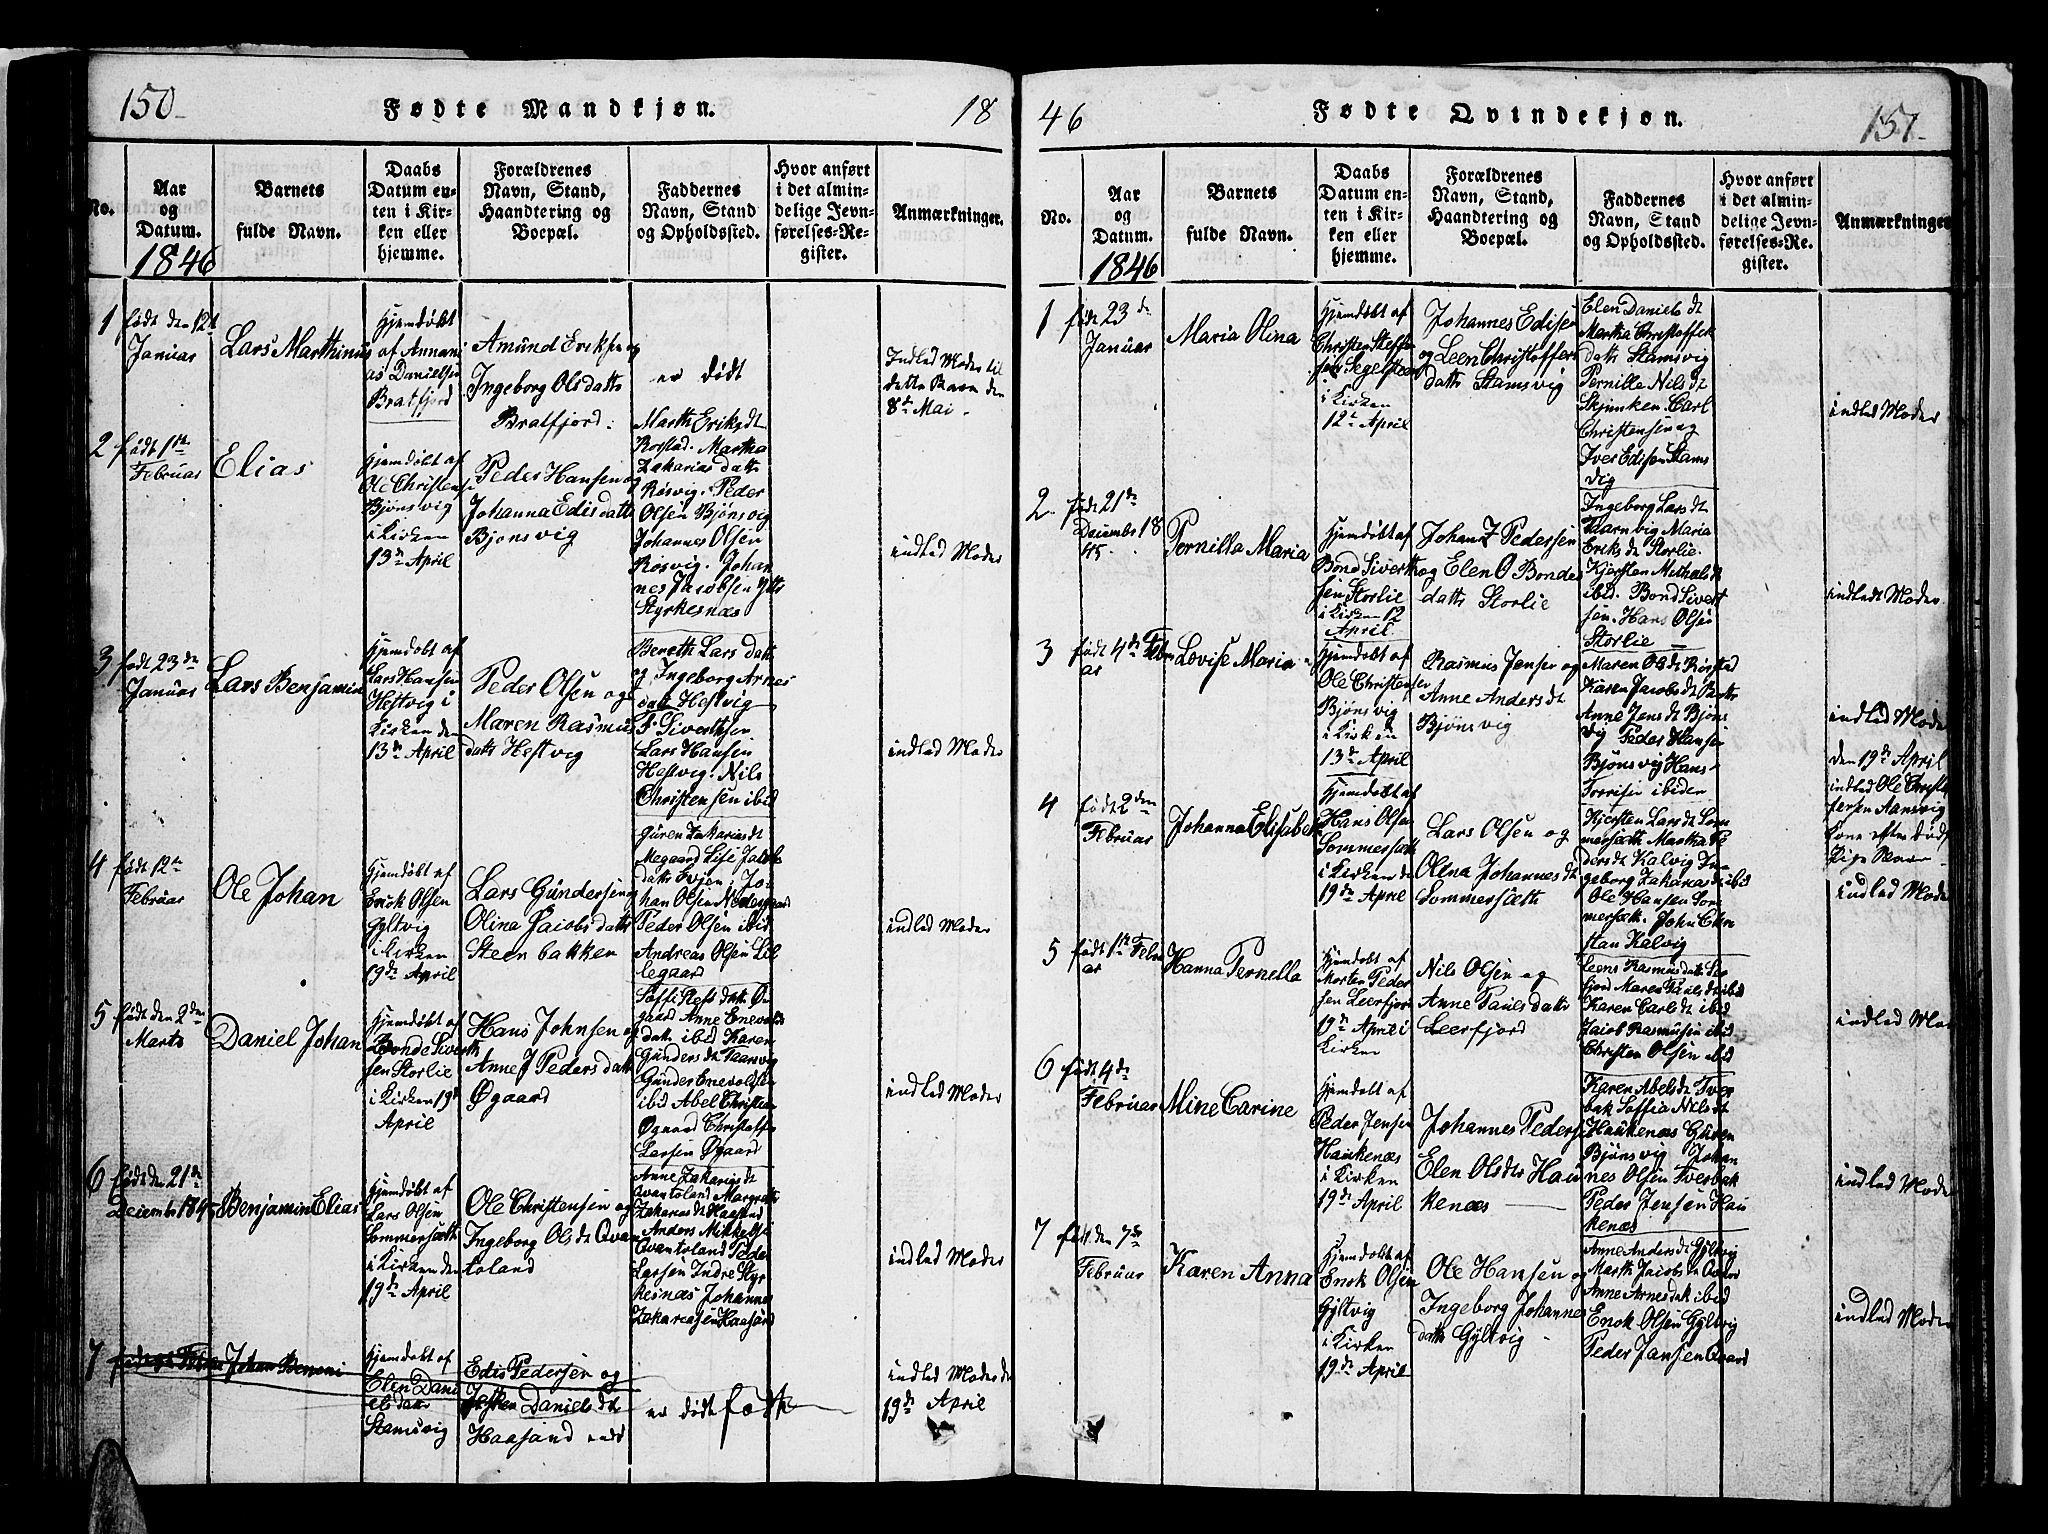 150
Fødte Mandkjøn.
18
No.
Aar
og
Datum.
1846
Barnets
fulde Navn.
Daabs
Datum en-
ten i Kir-
ken eller
hjemme.
Forældrenes
Navn, Stand,
Haandtering og
Boepæl.
Faddernes
Navn, Stand
og Opholdssted.
Hvor anført
i det almin-
delige Jevn-
førelses-Re-
gister.
Anmærkninger.
1
født den 12t
Januar
Lars Marthinus
Hjemdøbt
af Annani
as Danielsen
Bratfjord
Amund Eriksen og
Ingeborg Olsdatts
Bratfjord
er dødt
Indled Moder til
dette Barn den
8de Mai
2
født 1ste
Februar
Elias
Hjemdøbt af
Ole Christense
Bjønsvig
i Kirken
13de April
Peder Hansen og
Johanna Edisdatt
Bjønsvig
Marth Eriksdt
Rørstad. Martha
Zakarias datt
Røsvig. Peder
Olsen Bjønsvig
Johannes Olsen
Røsvig. Johan
nes Jacobsen Ytts
Styrkesnæs
indled Moder
3
født 23de
Januar
Lars Benjamin
Hjemdøbt af
Lars Hansen
Hestvig i
Kirken den
13de April
Peder Olsen og
Maren Rasmus
datts Hestvig
Bereth Lars datt
og Ingeborg Arnes
datt Hestvig
P. Sivertsen
Lars Hansen
Hestvig. Nils
Christensen ibid
indled Moder
4
født 12te
Februar
Ole Johan
Hjemdøbt af
Enok Olsen
Gyltvig
i Kirken
19de April
Lars Gundersen og
Olina Jacobsdatts
Steenbakken
Guren Zakariasdt
Megaard Lise Jacobs
datts Føjen, Jo-
han Olsen Nedregaard
Peder Olsen ibid
Andreas Olsen Lil
legaard
indled Moder
5
født den 2den
Marts
Daniel Johan
Hjemdøbt af
Bonde Siverts
sen Storlie
i Kirken 19de
April
Hans Johnsen og
Anne J Peders datt
Øgaard
gaard Anne Enevolds
datt ibid Karen
Gundersdt Taarnvig
Gunder Enevoldsen
ibid Abel Christian
Øgaard Christofer
Larsen Øgaard
indled Moder
6
født den 21de
Decembr 1845
Benjamin Elias
Hjemdøbt af
Lars Olsen
Sommersæth
i Kirken den
19de April
Ole Christensen og
Ingeborg Olsdt Qvan
toland
Anne Zakariasdt
Qvantoland Margrethe
Zakariasdt Haasand
Anders Mikkelsen
Qvantoland Peder
Larsen Indre Styr
kesnæs Johannes
Zakariasen Haasand
indled Moder
7
Johan Benoni
Hjemdøbt af
Elen Dani
elsdatt
Stamsvig
Edis Pedersen og
Daniels dt
Haasand
er dødt født
indled Moder de
19de April
46
Fødte Qvindekjøn.
151.
No.
Aar
og
Datum.
1846
Barnets
fulde Navn.
Daabs
Datum en-
ten i Kir-
ken eller
hjemme.
Forældrenes
Navn, Stand,
Haandtering og
Boepæl.
Faddernes
Navn, Stand
og Opholdssted.
Hvor anført
i det almin-
delige Jevn-
førelses-Re-
gister.
Anmærkninger
1
født 23de
Januar
Maria Olina
Hjemdøbt af
Christen Steffen
sen Segelsteen
i Kirken
12te April
Johannes Edisen
og Leen Christoffers
datts Stamsvig
Elen Daniels dt
Martha Christoffers
datts Stamsvig
Pernille Nils dt
Skjunken. Carl
Christensen og
Iver Edisen Stams
vig
indled Moder
2
født 21de
Decembr 18
45.
Pernilla Maria
Hjemdøbt af
Bond Siverts
sen Storlie
i Kirken 12
April
Johan J Pedersen
og Elen O Bondes
datts Storlie
Ingeborg Lars dt
Taarnvig Maria
Eriks dt Storlie.
Kjersten Michelsdt
ibid. Bond Sivert
sen. Hans Olsen
Storlie
indledt Moder
3
født 4de Febru
ar
Lovise Maria
Hjemdøbt af
Ole Christensen
Bjønsvig
i Kirken
13de April
Rasmus Jensen og
Anne Anders dt
Bjønsvig
Maren Olsdt Rørstad
Karen Jacobsdt
Anne Jens dt Bjøns
vig Peder Hansen
Bjønsvig Hans
Torrisen ibiden
indled Moder
den 19de April
indled Ole Christ
4
født 2den
Februar
Johanna Elisabeth
Hjemdøbt af
Hans Olsen
Sommersæth
i Kirken de
19de April
Lars Olsen og
Olina Johannes dt
Sommersæth
Kjersten Larsdt Som
mersæth Martha Pe
dersdt Kalvig In
geborg Zakariasdt ibid
Ole Hansen Som
mersæt. John Chri
stian Kalvig
indled Moder
5
født 1ste Febru
ar
Hanna Pernella
Hjemdøbt af
Morten Peder
sen Leerfjord
19de April i
Kirken
Nils Olsen og
Anne Pauls datts
Leerfjord
Leene Rasmusdatt Leer
fjord Maren Paulsdt ibid
Karen Carls dt ibid
Jacob Rasmusen ibid
Christen Olsen ibid
indled Mod
6
født 4de
Februar
Mine Carine
Hjemdøbt af
Peder Jensen
Haukenæs
i Kirken
19de April
Johannes Peders
Elen Olsdts Hau
kenæs
Karen Abelsdt Tver
bak Soffia Nilsdt
Haukenæs Guren
Bjønsvig Johan
nes Olsen Tverbak
Peder Jensen Hau
kenæs
indled Moder
7
født den 7de
Februar
Karen Anna
Hjemdøbt af
Enok Olsen
Gyltvig
i Kirken
19de April
Ole Hansen og
Ingeborg Johannes
datts Gyltvig
Anne Andersdt Gyltvig
Marth Jacobsdt
Anne Arnesdatt ibid
Enok Olsen Gyltvig
Peder Jansen
indled Moder